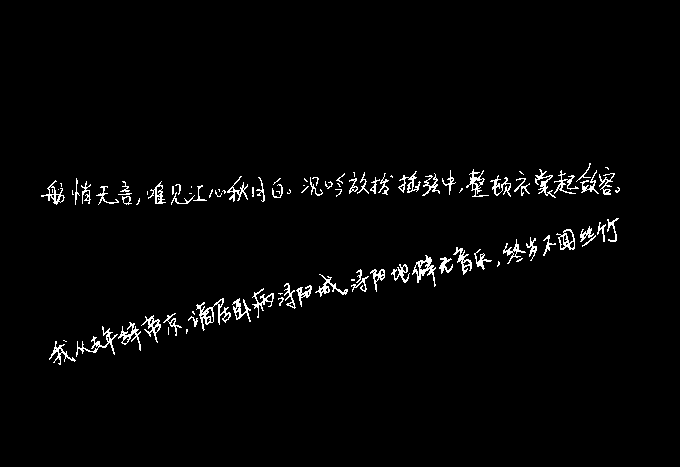 舫悄无言,唯见江心秋月白。沉吟放拨插弦中,整顿衣裳起敛容。
我从去年辞帝京,谪居卧病浔阳城。浔阳地僻无音乐,终岁不闻丝竹